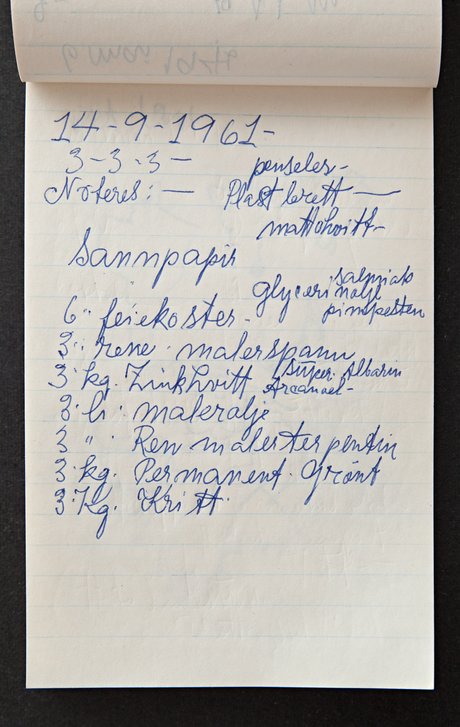 14-9-1961-
3-3-3-
penseler-
Noteres: — Plast brett —
matthvitt-
Sannpapir
salmiak
glycerinolje
6" feiekoster.
3" rene malerspann
Super Albarin
3 kg. Zinkhvitt
3 li malerolje
3 " Ren malerterpentin
3 kg. Permanent. Grønt
3 Kg. Kritt.